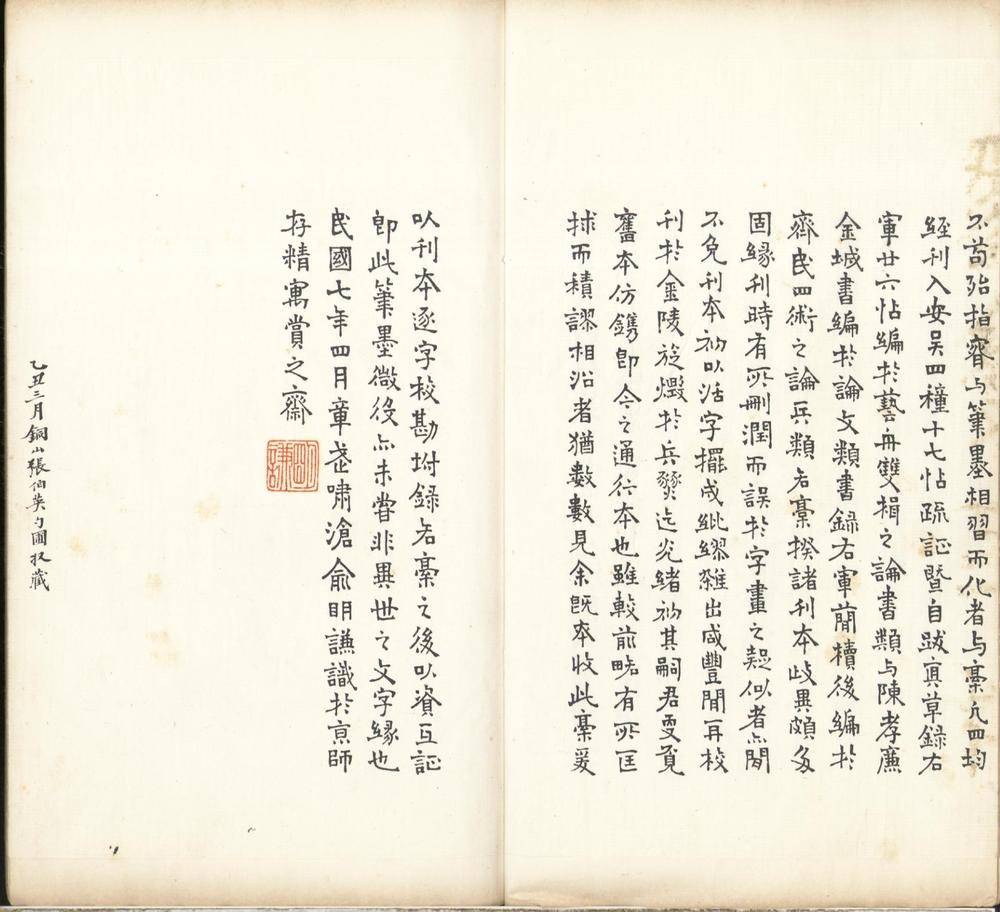 不苟殆指睿与筆墨相習而化者与稾凢四均
經刊入安吴四種十七帖疏証暨自跋眞草録右
軍廿六帖編於藝舟雙楫之論書類与陳孝廉
金城書編於論文類書録右軍蘭櫝後編於
齊民四術之論兵類右稾揆諸刊本歧異頗多
固緣刊時有所刪潤而誤於字畫之疑似者亦閒
不免刊本初以活字擺成紕繆雜出咸豐閒再校
刊於金陵旋燬於兵燹迄光緒初其嗣君更覓
舊本仿鐫即今之通行本也雖較前略有所匡
捄而積謬相沿者猶數數見余旣夲收此稾爰
以刊本逐字校勘坿録右稾之後以資互証
即此筆墨微役亦未嘗非異世之文字緣也
民國七年四月章武嘯滄俞明謙識於京師
存精寓賞之齋
乙丑三月銅山張伯英勺圃収藏